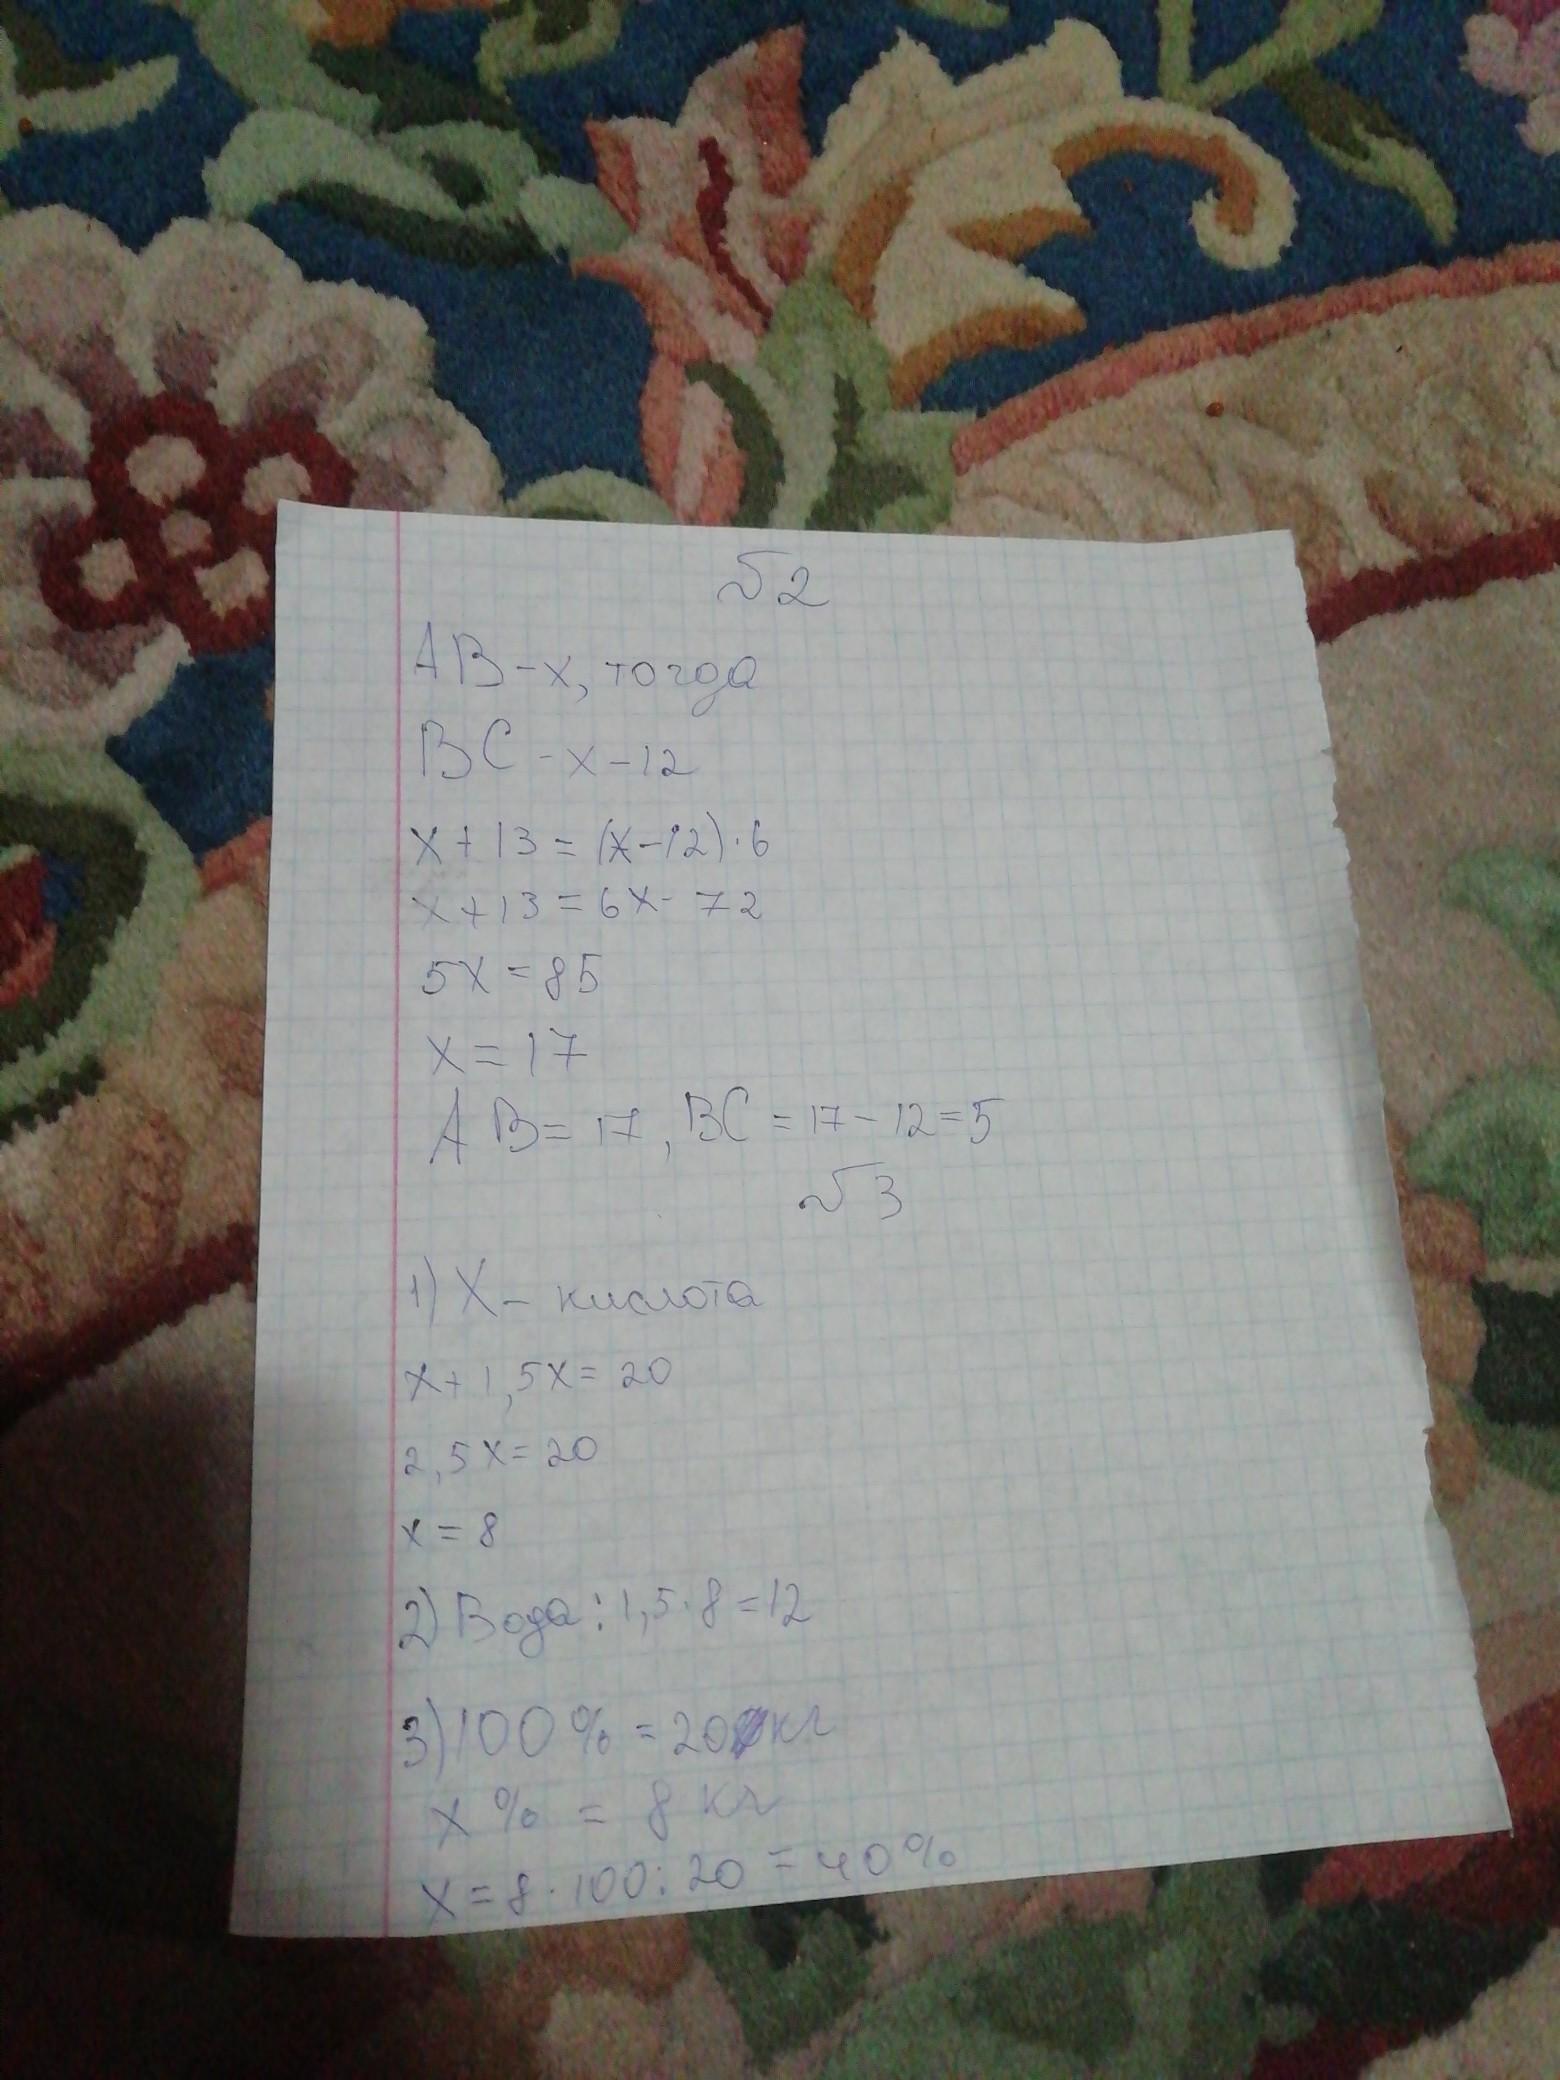 №2
AB - x, тогда
BC - x - 12
x + 13 = (x - 12) · 6
x + 13 = 6x - 72
5x = 85
x = 17
AB = 17, BC = 17 - 12 = 5
№3
1) X - кислота
x + 1,5x = 20
2,5x = 20
x = 8
2) Вода: 1,5 · 8 = 12
3) 100% = 20 кг
x % = 8 кг
x = 8 · 100 : 20 = 40%